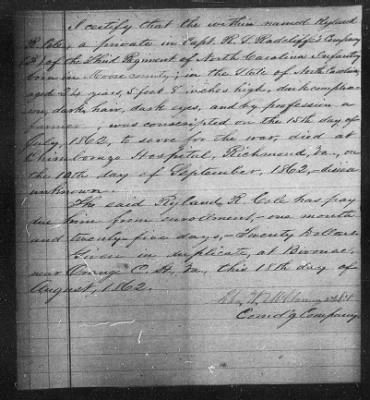 I certify that the within named Ryland
R. Cole, a private in Capt. R. S. Radcliffe's Company
of the Third Regiment of North Carolina Infantry
born in Moore county, in the State of North Carolina,
aged 24 years, 5 feet 8 inches high, dark complex-
ion, dark hair, dark eyes, and by profession a
farmer, was conscripted on the 15th day of
July, 1862, to serve for the war, died at
Chimborazo Hospital, Richmond, Va., on
the 10th day of September, 1862,-
unknown.
The said Ryland R. Cole has pay
due him from enrollment,- one month
and twenty five days,- Twenty Dollars
Given in duplicate, at Bivouac,
near Orange C. H. Va., this 18th day of
August, 1862.
Comd'g Company